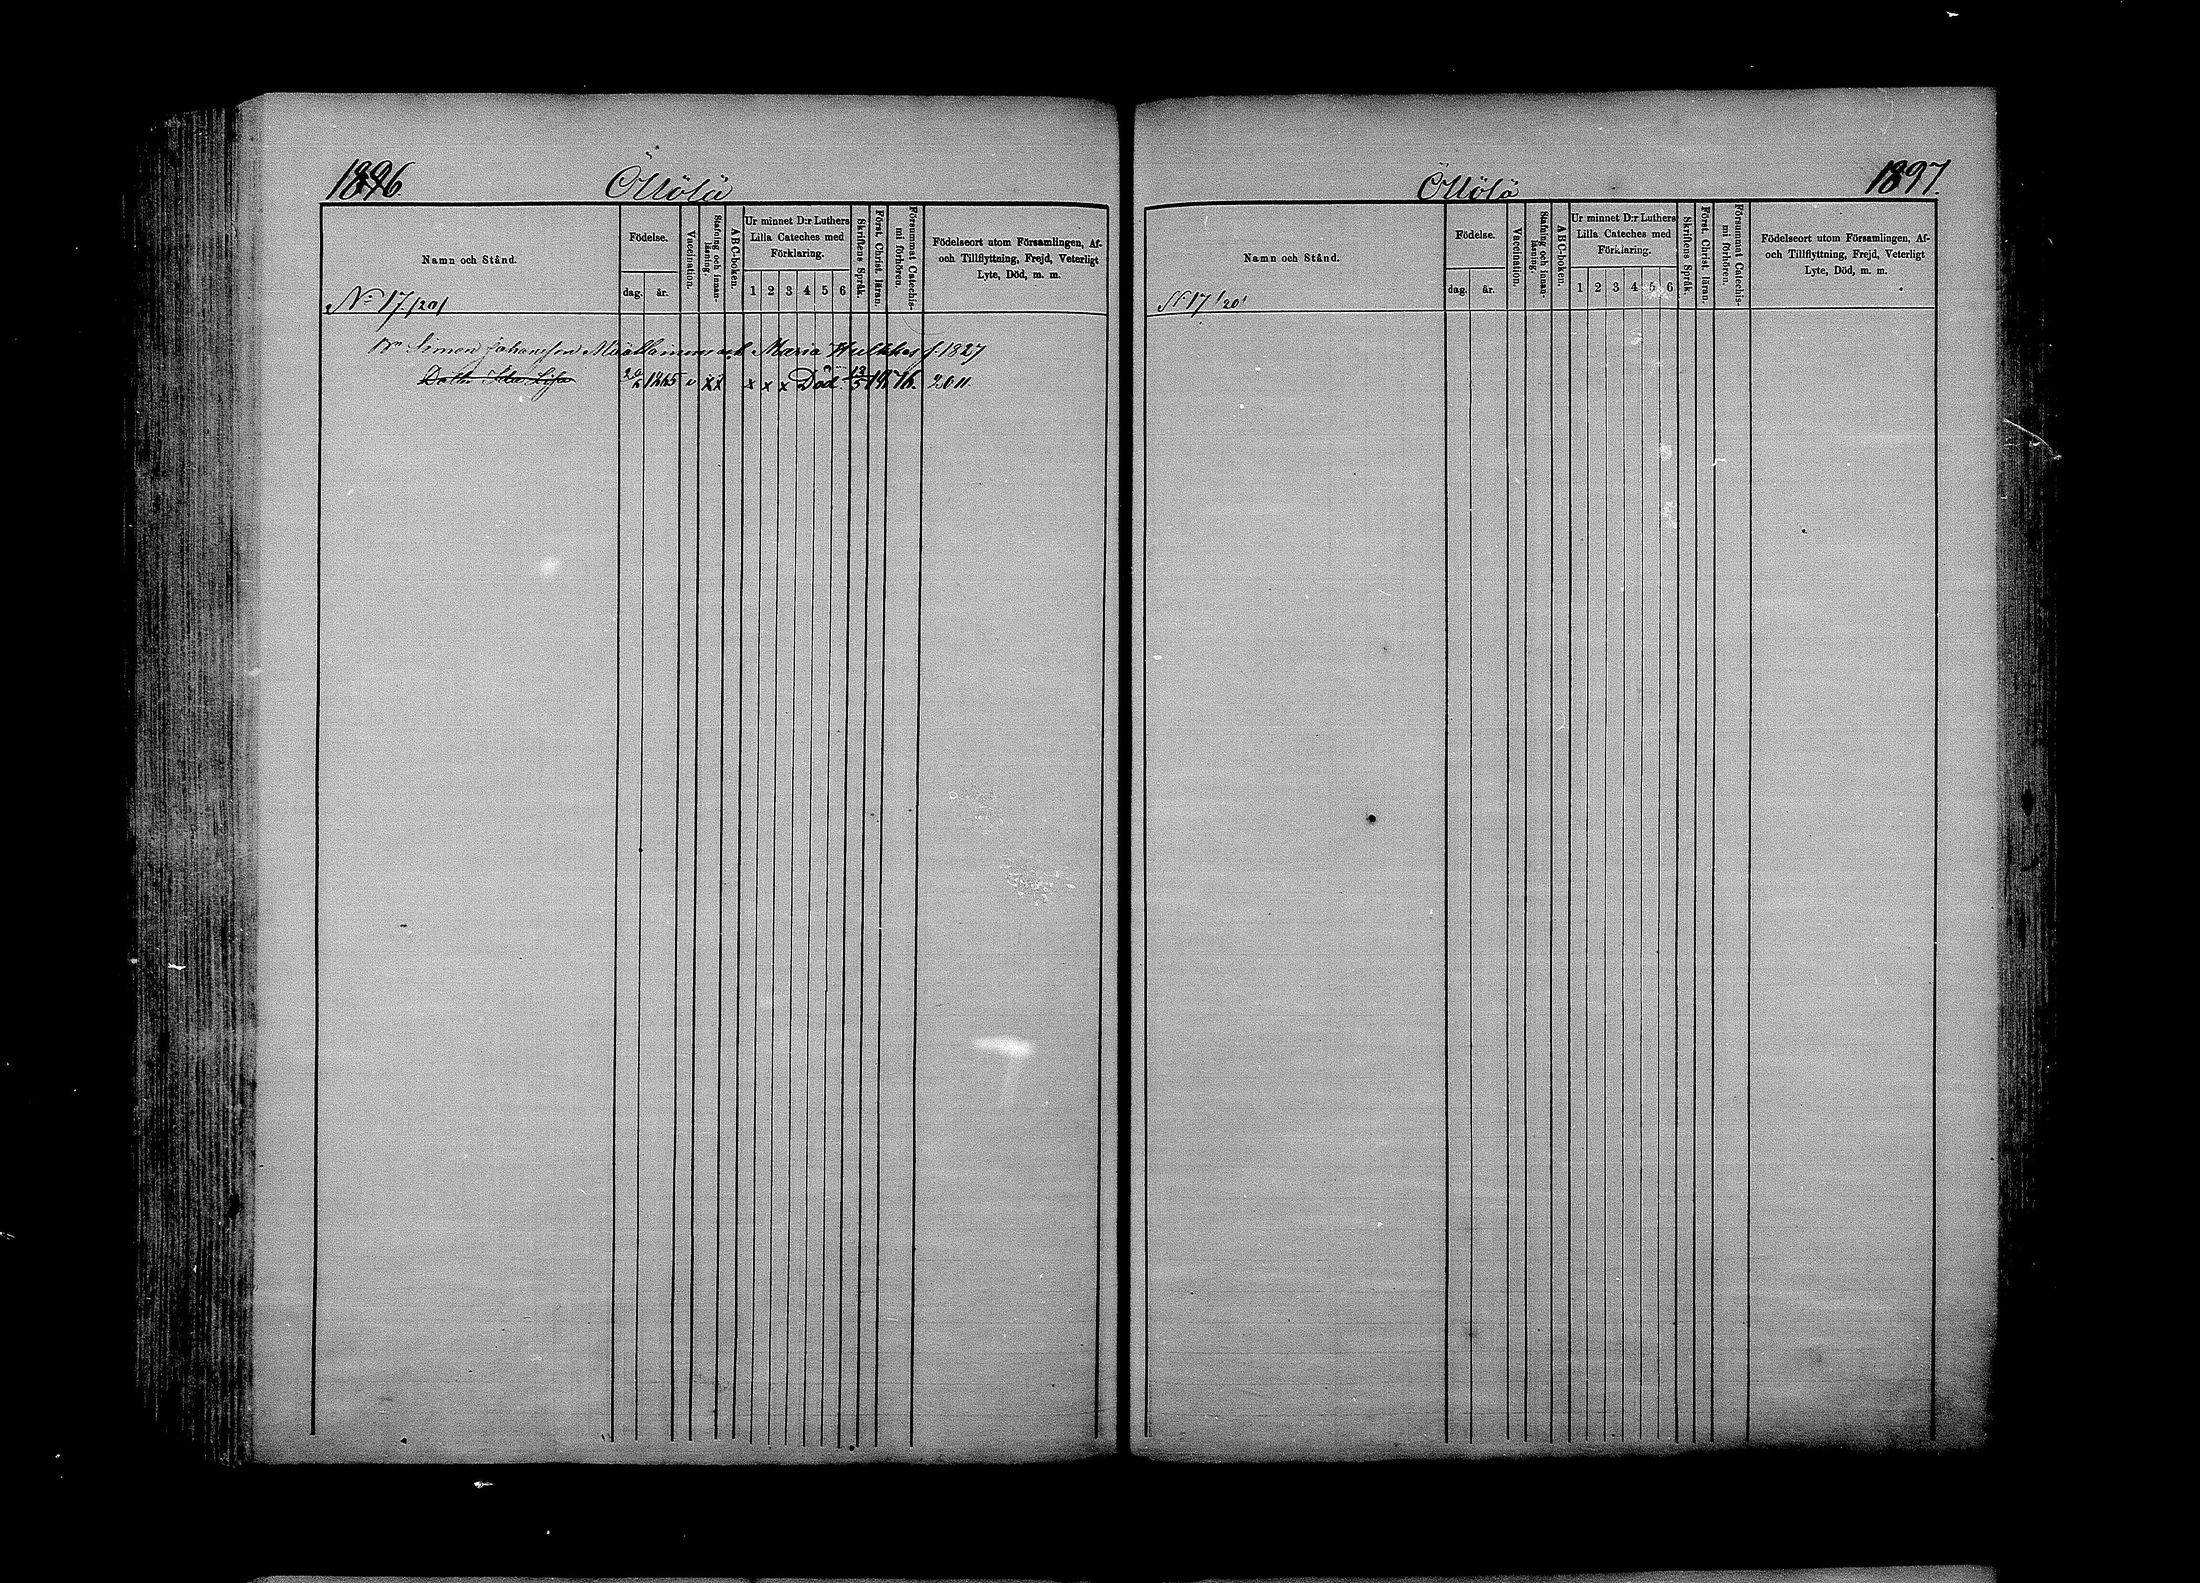 1896
Öllölä
Namn och Stånd.
Födelse.
dag. år.
Vaccination.
Stafning och innan-läsning.
ABC-boken.
Ur minnet D:r Luthers
Lilla Cateches med
Förklaring.
1 2 3 4 5 6
Skriftens Språk.
Först. Christ. läran.
Försummat Catechis-mi förhören.
Födelseort utom Församlingen, Af-
och Tillflyttning, Frejd, Veterligt
Lyte, Död, m. m.
No 17. /20/
Simon Johansson och Maria f. 1827
Dottr Ida Lisa 1865 v xx x x x Död 13/5 1876. 2011
Öllölä
1897.
Namn och Stånd.
Födelse.
dag. år.
Vaccination.
Stafning och innan-läsning.
ABC-boken.
Ur minnet D:r Luthers
Lilla Cateches med
Förklaring.
1 2 3 4 5 6
Skriftens Språk.
Först. Christ. läran.
Försummat Catechis-mi förhören.
Födelseort utom Församlingen, Af-
och Tillflyttning, Frejd, Veterligt
Lyte, Död, m. m.
No 17 /20/